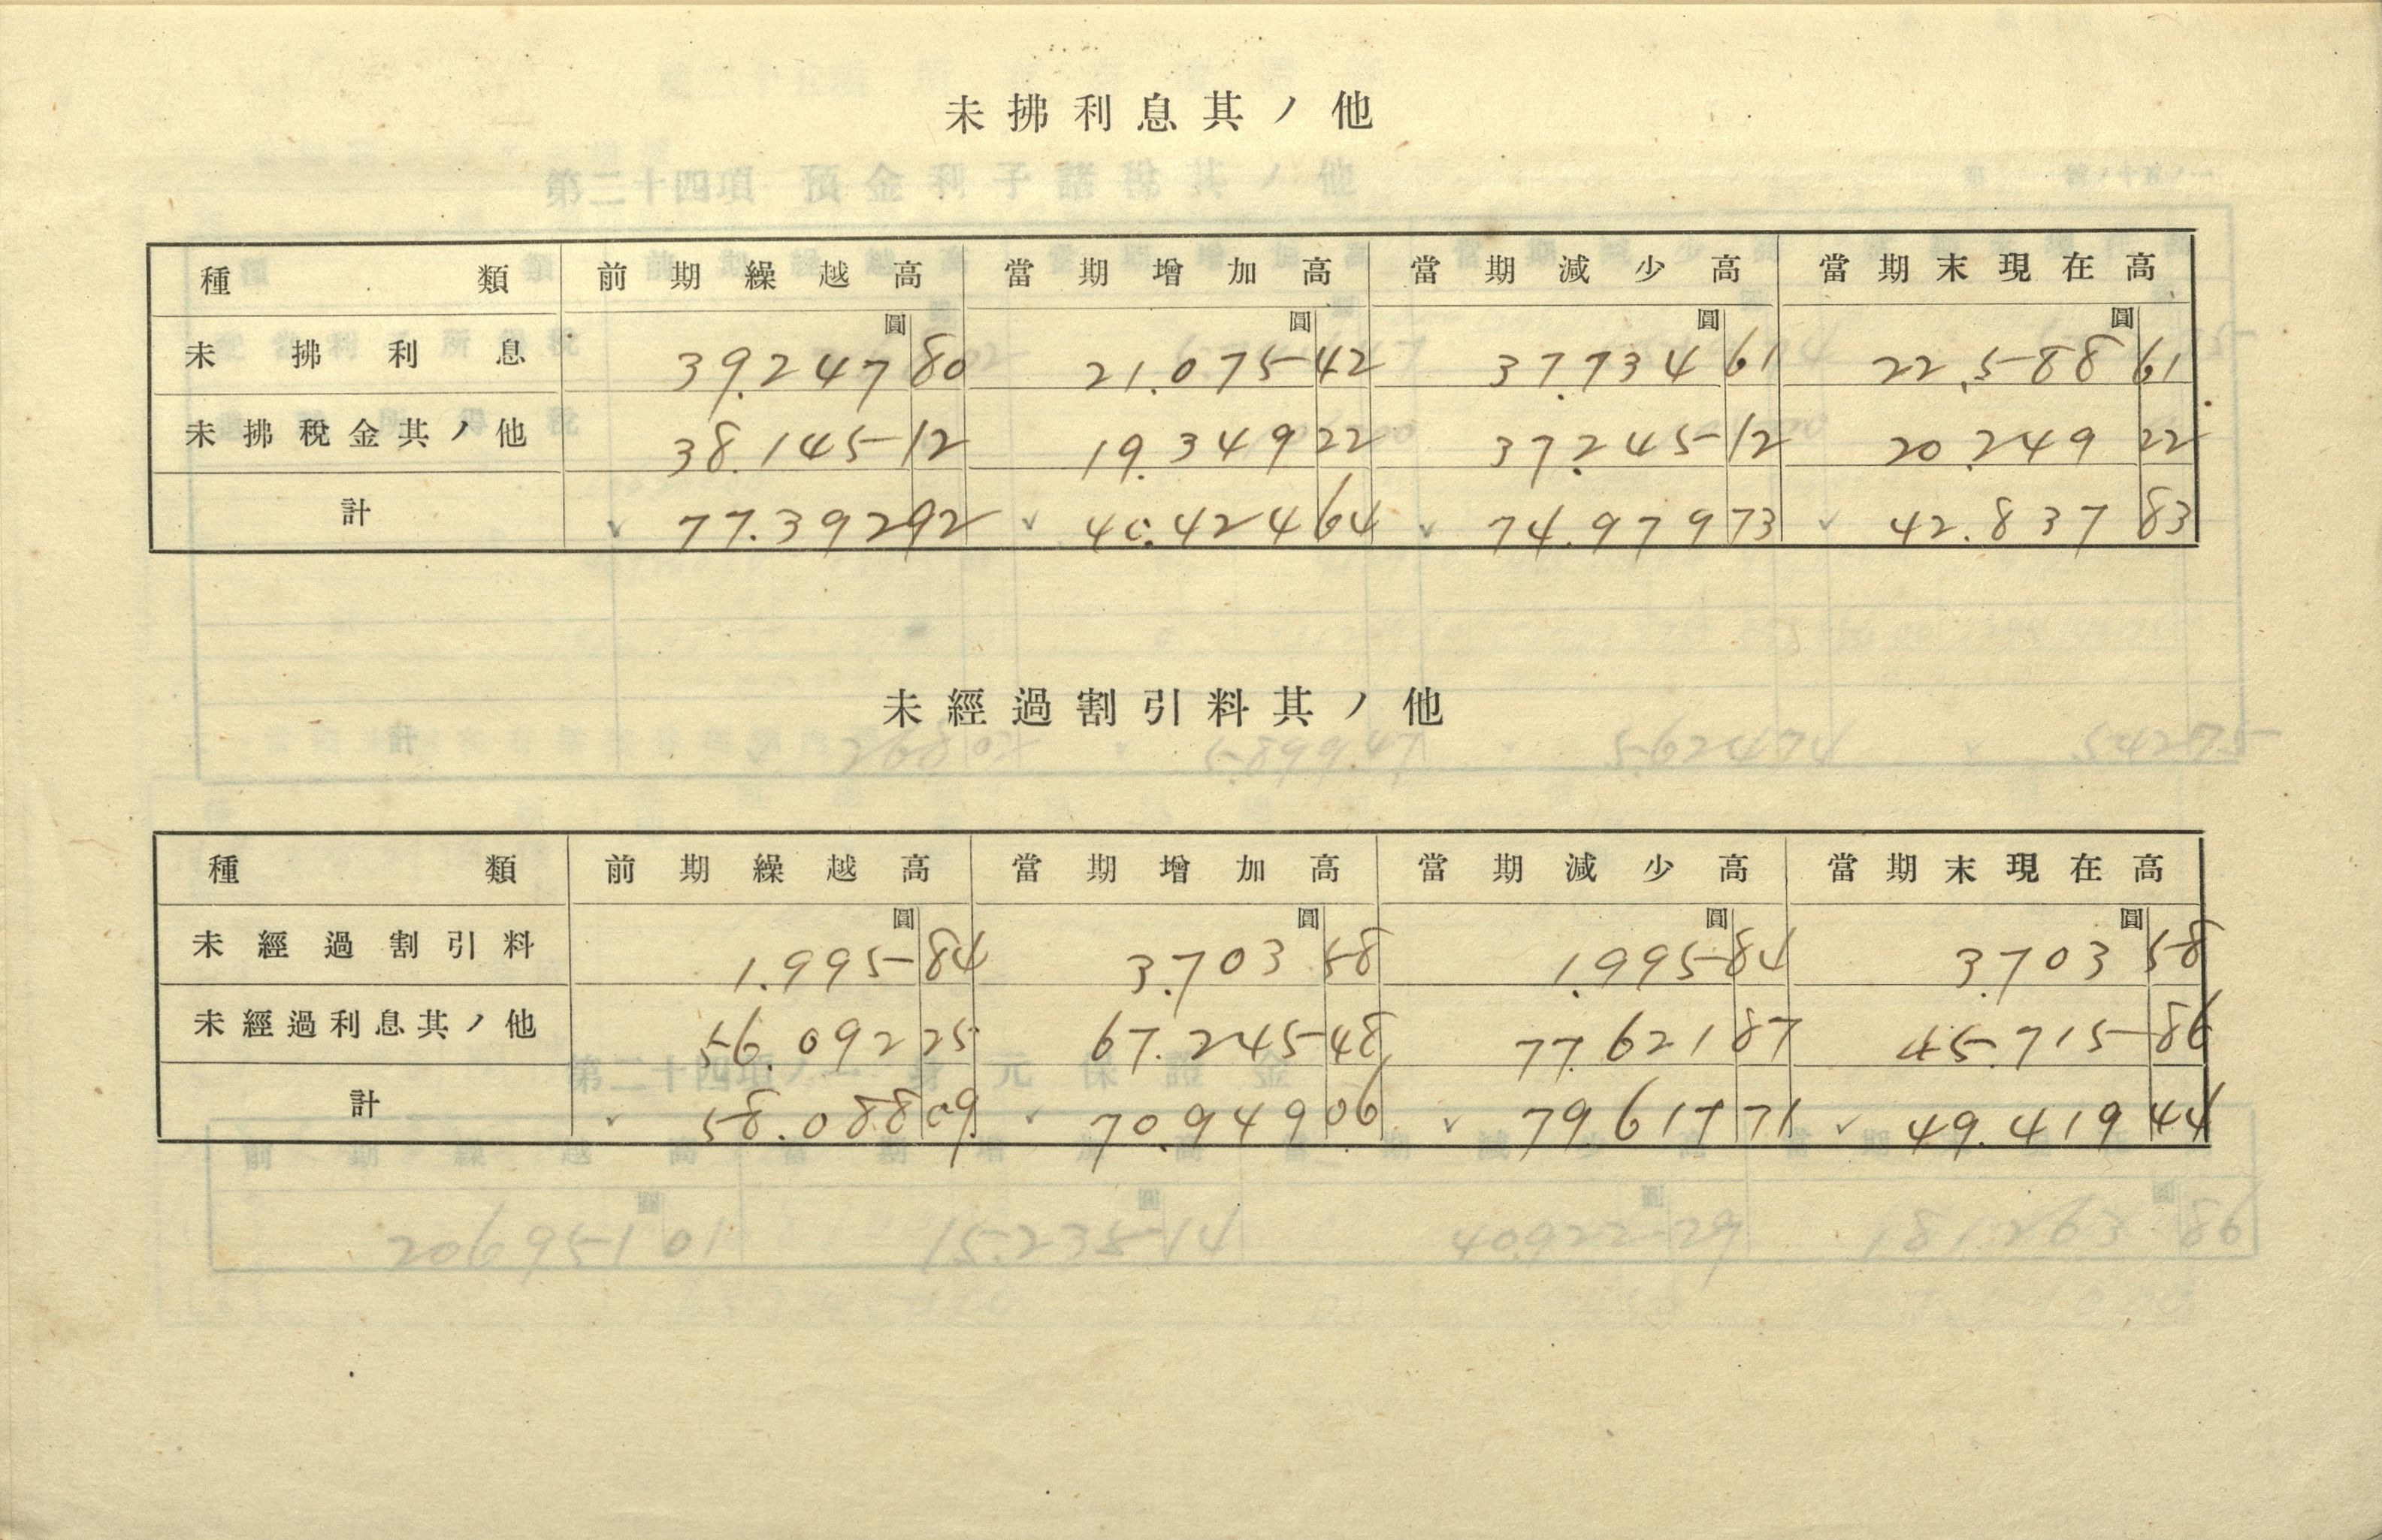 未拂利息其ノ他
種類 前期繰越高 當期增加高 當期減少高 當期末現在高
圓 圓 圓 圓
未拂利息 39.247 80 21.075 42 37.734 61 22.588 61
未拂稅金其ノ他 38.145 12 19.349 22 37.245 12 20.249 22
計 ✓ 77.392 92 ✓ 40.424 64 ✓ 74.979 73 ✓ 42.837 83
未經過割引料其ノ他
種類 前期繰越高 當期增加高 當期減少高 當期末現在高
圓 圓 圓 圓
未經過割引料 1.995 84 3.703 58 1.995 84 3.703 58
未經過利息其ノ他 56.092 25 67.245 48 77.621 87 45.715 86
計 ✓ 58.088 09 ✓ 70.949 06 ✓ 79.617 71 ✓ 49.419 44